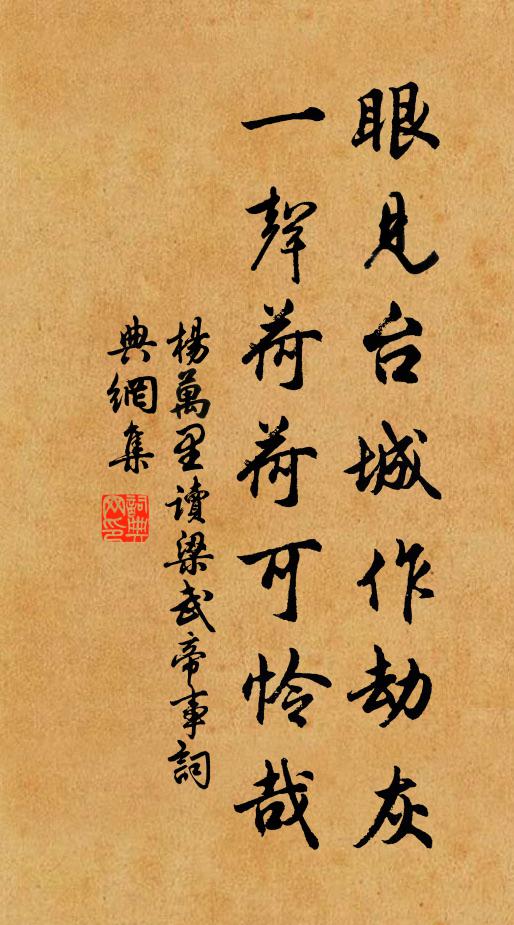 眼见台城作劫灰
一聲荷荷可怜哉
楊萬里讀梁武帝事詞
典網集
詞典
网印